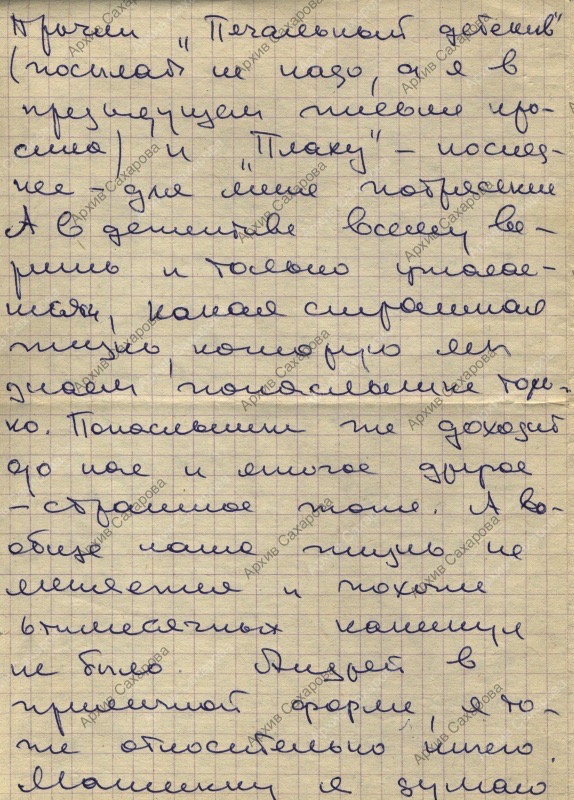 Прочли „Печальный детектив"
(посылать не надо, а я в
предыдущем письме про-
сила) и „Плаху" – послед-
нее – для меня потрясение
А в детективе всему ве-
ришь и только ужасае-
шься, какая страшная
жизнь, которую мы
знаем понаслышке толь-
ко. Понаслышке же доходит
до нас и многое другое
– страшное тоже. А во-
обще наша жизнь не
меняется и похоже
6тимесячных каникул
не было. Андрей в
приличной форме, я то-
же относительно ничего.
Машинку я думаю
Архив Сахарова